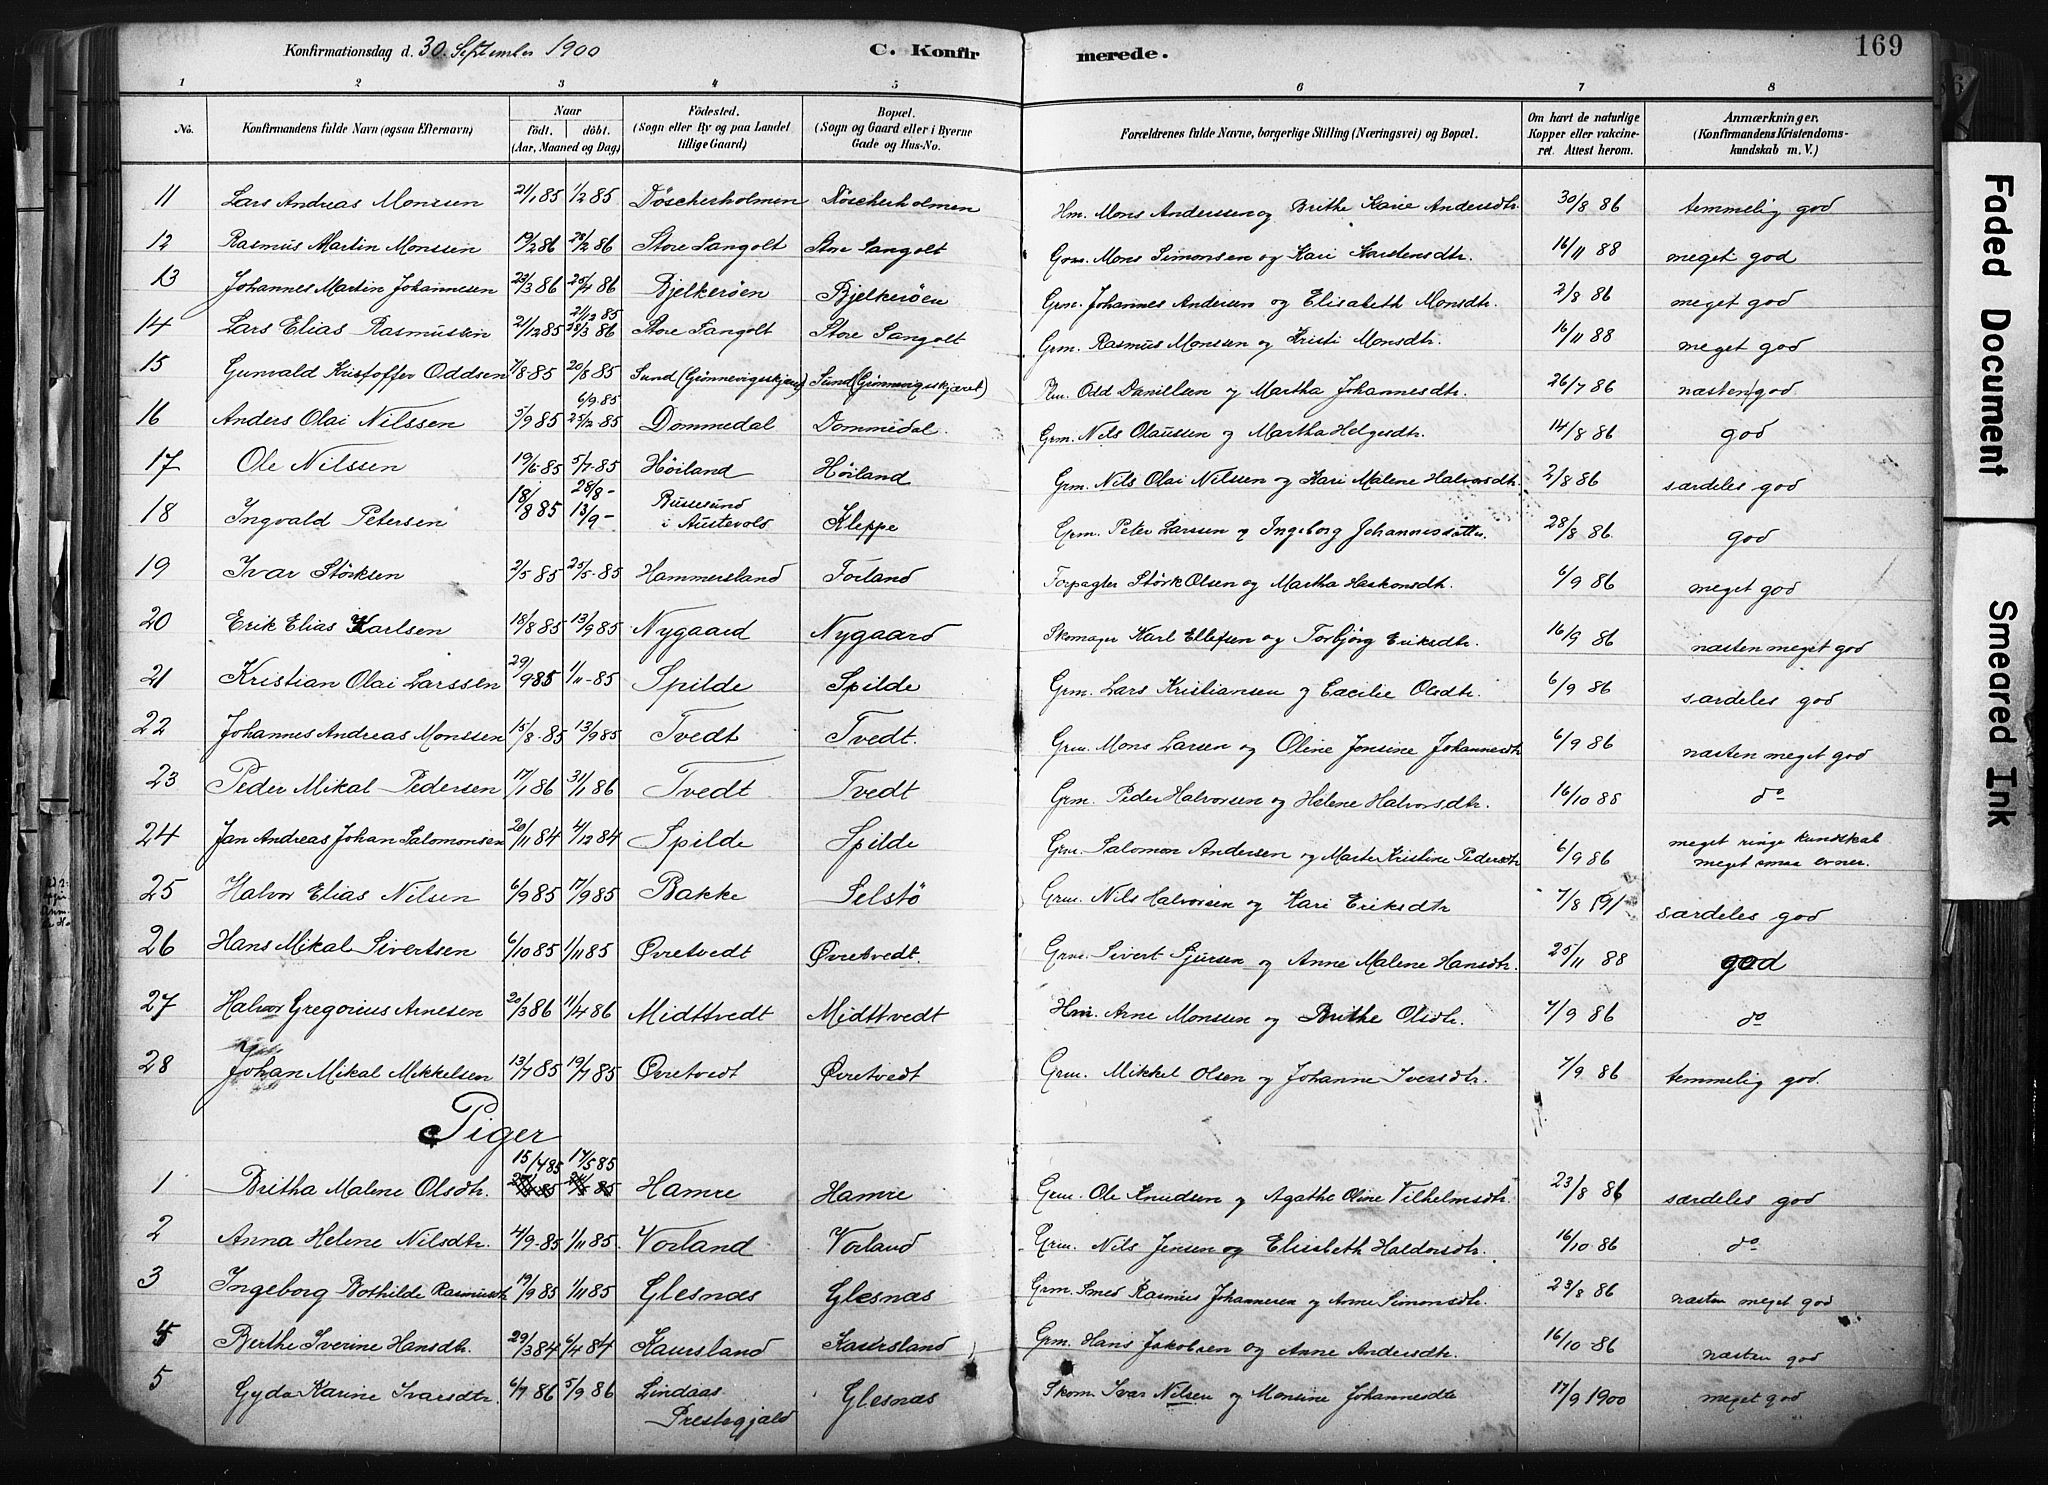 Konfirmationsdag d. 30. September 1900 C. Konfirmerede. 169
1 2 3 4 5 6 7 8
No. Konfirmandens fulde Navn (ogsaa Efternavn) Naar födt. döbt. (Aar, Maaned og Dag) Födested. (Sogn eller By og paa Landet tillige Gaard) Bopæl. (Sogn og Gaard eller i Byerne Gade og Hus-No. Forældrenes fulde Navne, borgerlige Stilling (Næringsvei) og Bopæl. Om havt de naturlige Kopper eller vakcineret. Attest herom. Anmærkninger. (Konfirmandens Kristendomskundskab m. V.)
11 Lars Andreas Monssen 21/1 85 1/2 85 Döscherholmen Döscherholmen Hm. Mons Anderssen og Brithe Karie Andersdtr. 30/8 86 temmelig god
12 Rasmus Martin Monssen 19/2 86 28/2 86 Store Sangolt Store Sangolt Grm. Mons Simonsen og Kari Karstensdtr. 16/11 88 meget god
13 Johannes Martin Johannesen 23/3 86 26/4 86 Bjelkeröen Bjelkeröen Grm. Johannes Andersen og Elisabeth Monsdtr. 2/8 86 meget god
14 Lars Elias Rasmussen 21/12 85 21/12 85 28/3 86 Store Sangolt Store Sangolt Grm. Rasmus Monssen og Kristi Monsdtr. 16/11 88 meget god
15 Gunvald Kristoffer Oddsen 7/8 85 20/8 85 Sund (Grönnevigsskjæret) Sund (Grönnevigsskjæret) Odd Danillsen og Martha Johannesdtr. 26/7 86 næsten god
16 Anders Olai Nilssen 5/9 85 6/9 85 25/12 85 Dommedal Dommedal. Grm. Nils Olaussen og Martha Helgesdtr. 14/8 86 god
17 Ole Nilssen 19/6 85 5/7 85 Höiland Höiland Grm. Nils Olai Nilssen og Kari Malene Halvorsdtr. 2/8 86 særdeles god
18 Ingvald Petersen 18/8 85 28/8 - 13/9 - Bussesund i Austevold Kleppe Grm. Peter Larssen og Ingeborg Johannesdatter. 28/8 86. god
19 Ivar Störksen 2/5 85 25/5 85 Hammersland Forland Forpagter Störk Olsen og Martha Haakonsdtr. 6/9 86 meget god
20 Erik Elias Karlsen 18/8 85 13/9 85 Nygaard Nygaard Skomager Karl Ellefsen og Torbjörg Eriksdtr. 16/9 86 næsten meget god
21 Kristian Olai Larssen 29/9 85 1/11 85 Spilde Spilde Grm. Lars Kristiansen og Cecilie Olsdtr. 6/9 86 særdeles god
22 Johannes Andreas Monssen 15/8 85 13/9 85 Tvedt Tvedt. Grm. Mons Larsen og Oline Jonsine Johannesdtr 6/9 86 næsten meget god
23 Peder Mikal Pedersen 17/1 86 31/1 86 Tvedt Tvedt Grm. Peder Halvorsen og Helene Halvorsdtr. 16/10 88 do
24 Jan Andreas Johan Salomonsen 20/11 84 4/12 84 Spilde Spilde Grm. Salomon Andersen og Marte Kristine Pedersdtr 6/9 86 meget ringe kundskab meget smaa evner.
25 Halvor Elias Nilsen 6/9 85 17/9 85 Bakke Selstö Grm. Nils Halvorsen og Kari Eriksdtr 7/8 særdeles god
26 Hans Mikal Sivertsen 6/10 85 1/11 85 Øvretvedt Øvretvedt. Grm. Sivert Sjursen og Anne Malene Hansdtr. 25/11 88 god
27 Halvor Gregorius Arnesen 20/3 86 11/4 86 Midttvedt Midttvedt Hm. Arne Monssen og Brithe Olsdtr. 7/9 86 do
28 Johan Mikal Mikkelsen 13/7 85 19/7 85 Øvretvedt Øvretvedt Grm. Mikkel Olsen og Johanne Iversdtr. 7/9 86 temmelig god.
Piger
1 Britha Malene Olsdtr. 15/4 85 17/5 85 Hamre Hamre Grm. Ole Knudsen og Agathe Oline Vilhelmsdtr. 23/8 86 særdeles god
2 Anna Helene Nilsdtr. 4/9 85 1/11 85 Vorland Vorland Grm. Nils Jensen og Elisabeth Haldorsdtr. 16/10 86 do
3 Ingeborg Bothilde Rasmusdtr 19/9 85 1/11 85 Glesnæs Glesnæs Grm. Smed Rasmus Johannesen og Anne Simonsdtr. 23/8 86 næsten meget god
4 Berthe Iverine Hansdtr. 29/3 84 6/4 84 Kaursland Kaursland Grm. Hans Jakobsen og Anne Andersdtr. 16/10 86 næsten god
5 Gyda Karine Ivarsdtr. 6/7 86 5/9 86 Lindaas Prestegjæld Glesnæs Skom. Ivar Nilsen og Monsine Johannesdtr 17/9 1900 meget god
Faded Document
Smeared Ink